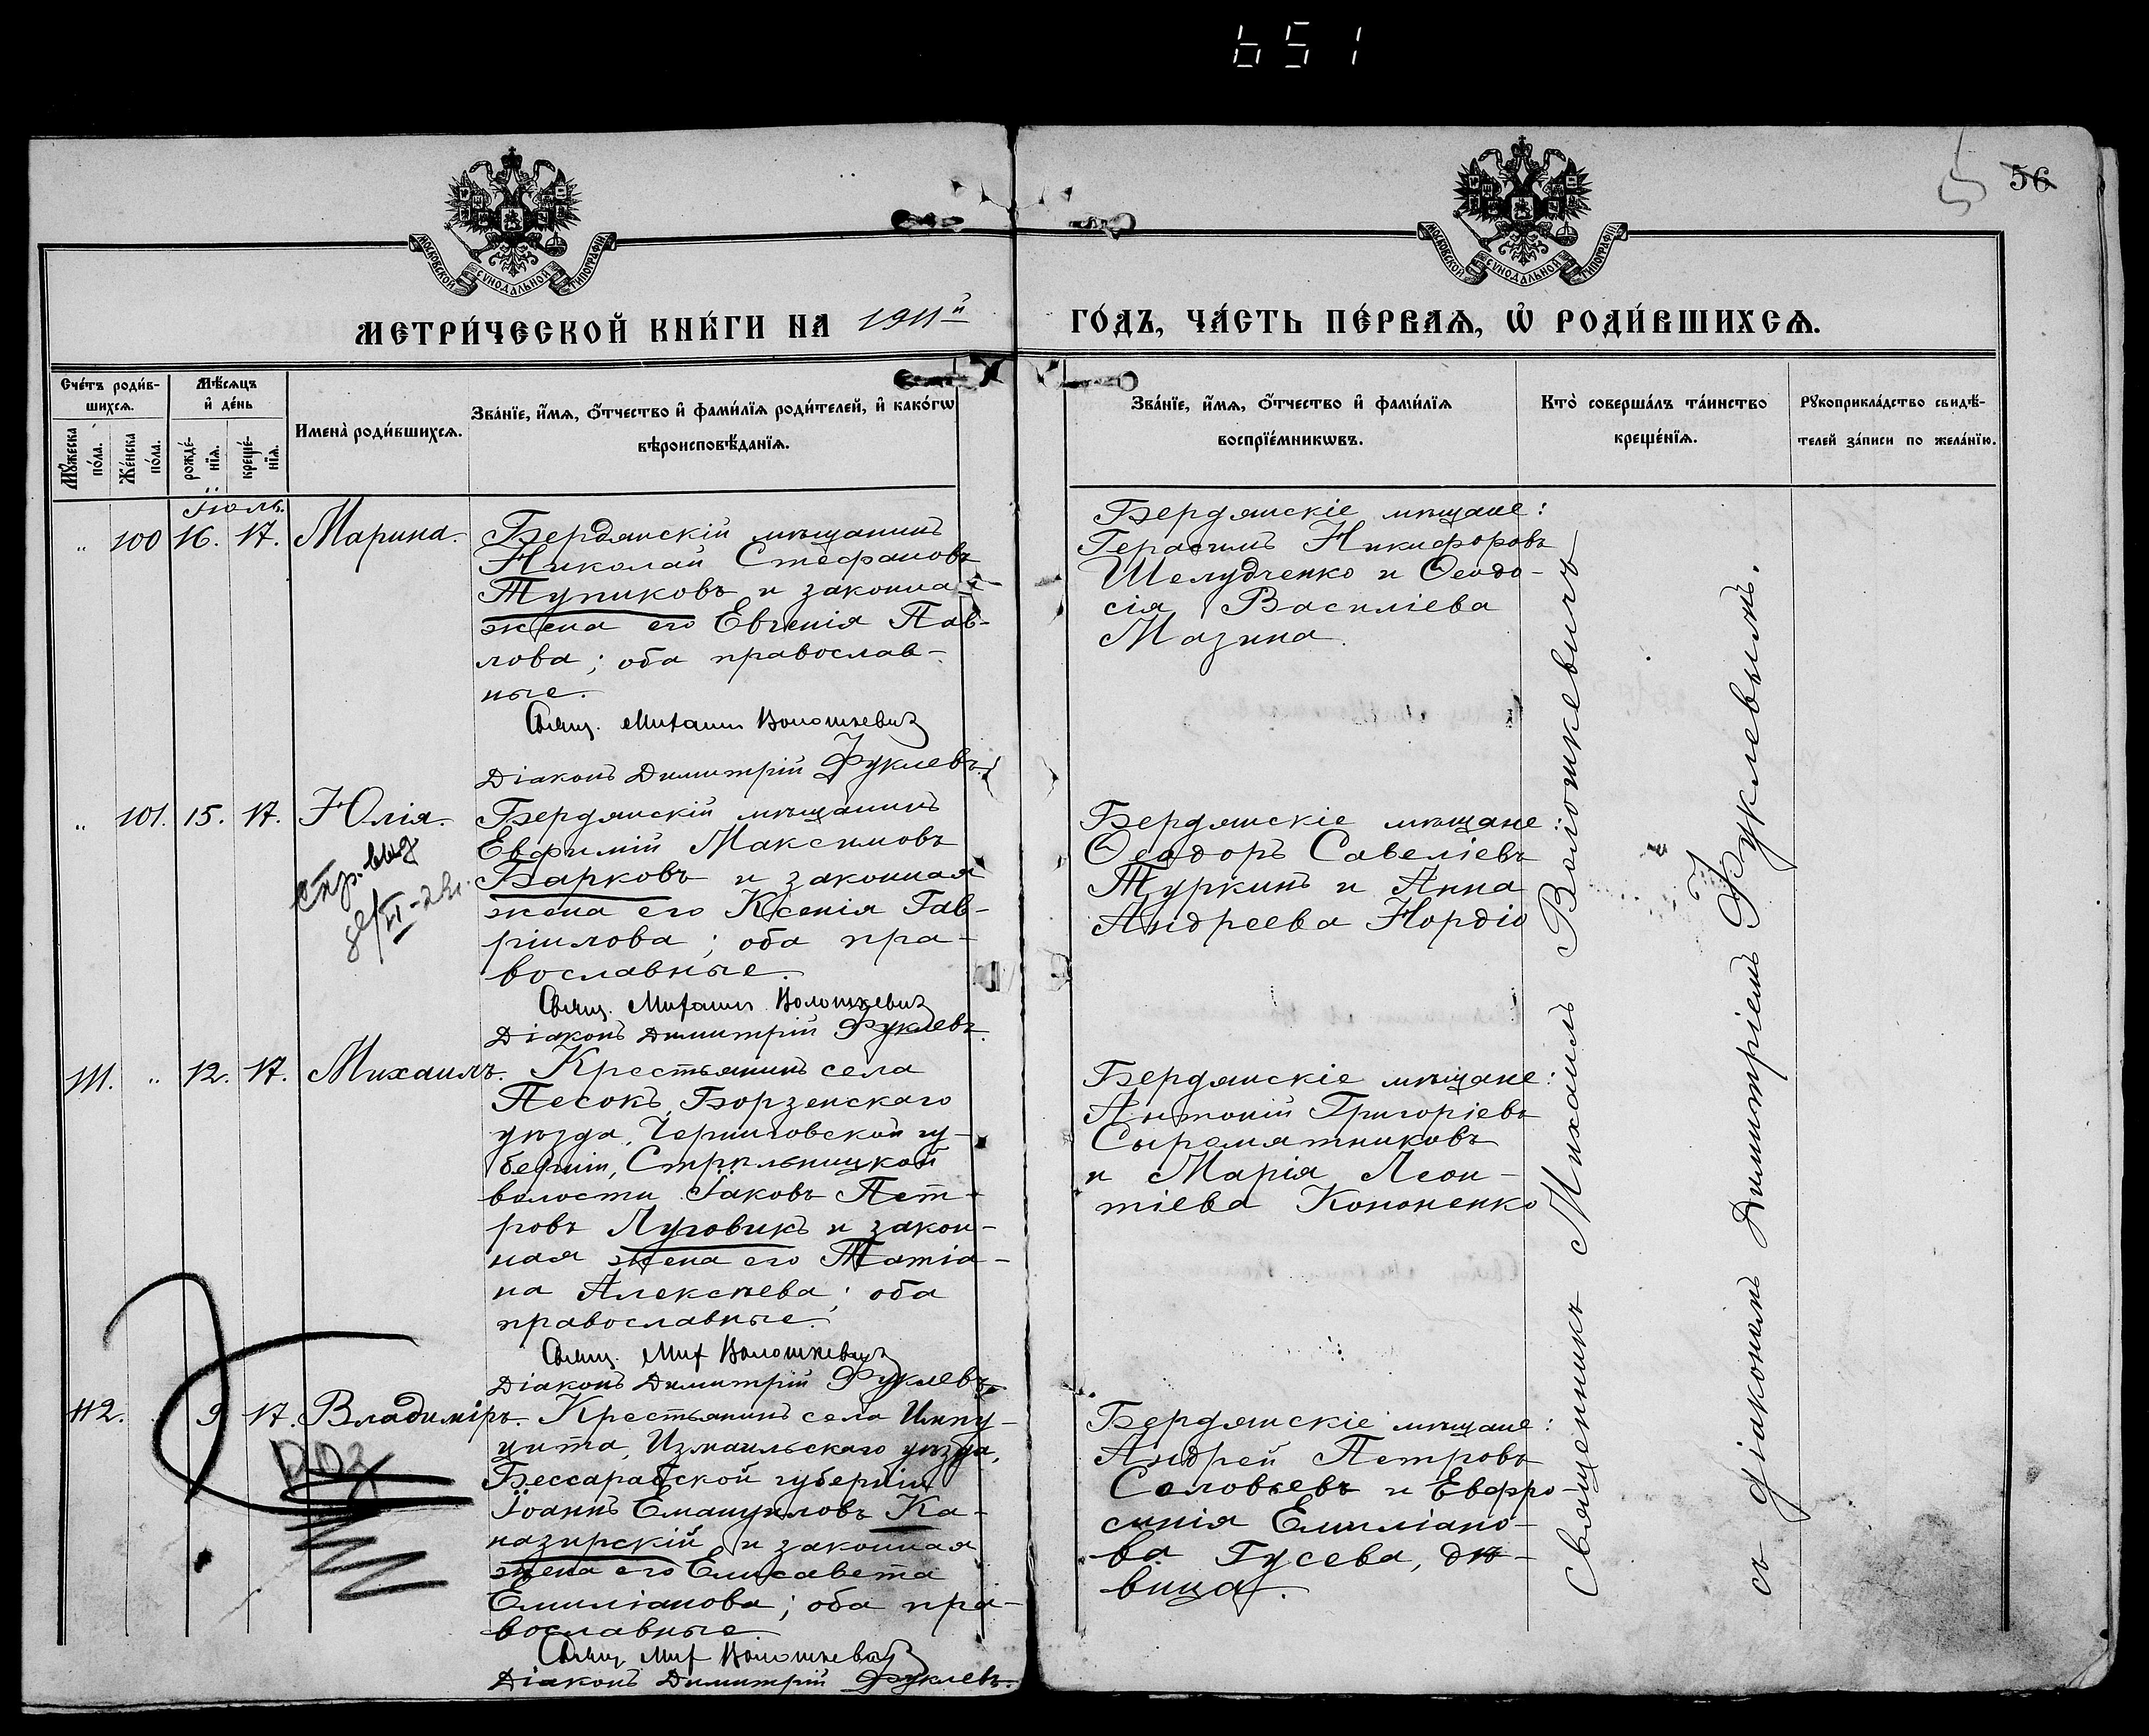 651
56
МОСКОВСКОЙ СУНОДАЛЬНОЙ ТИПОГРАФІИ
МОСКОВСКОЙ СУНОДАЛЬНОЙ ТИПОГРАФІИ
МЕТРИ́ЧЕСКОЙ КНИ́ГИ НА 1911й
ГО́ДЪ, ЧА́СТЬ ПЕ́РВАѦ, Ѡ҆ РОДИ́ВШИХСѦ.
Сче́тъ роди́в-
шихсѧ.
Мꙋ́жеска
по́ла.
Же́нска
по́ла.
Мѣ́сѧцъ
и҆ де́нь
рожде́-
нїѧ.
креще́-
нїѧ.
Имена̀ роди́вшихсѧ.
Зва́нїе, и҆́мѧ, ѻ҆́тчество и҆ фами́лїѧ роди́телей, и҆ како́гѡ
вѣроисповѣ́данїѧ.
Зва́нїе, и҆́мѧ, ѻ҆́тчество и҆ фами́лїѧ
воспрїе́мникѡвъ.
Кто̀ соверша́лъ та́инство
креще́нїѧ.
Рꙋкоприкла́дство свидѣ́-
телей за́писи по жела́нїю.
Іюль.
„ 100 16. 17. Марина.
Бердянскій мѣщанинъ
Николай Стефановъ
Тупиковъ и законная
жена его Евгенія Пав-
лова; оба православ-
ные.
Свящ. Михаилъ Волошкевич
Діаконъ Димитрій Фуклевъ.
Бердянскіе мѣщане:
Герасимъ Никифоровъ
Шелудченко и Ѳеодо-
сія Василіева
Мазина.
„ 101. 15. 17. Юлія.
Бердянскій мѣщанинъ
Евфимій Максимовъ
Барковъ и законная
жена его Ксенія Гав-
ріилова; оба пра-
вославные.
Свящ. Михаилъ Волошкевич
Діаконъ Димитрій Фуклевъ.
Бердянскіе мѣщане:
Ѳеодоръ Савеліевъ
Туркинъ и Анна
Андреева Нордіо
111. „ 12. 17. Михаилъ.
Крестьянинъ села
Песокъ, Борзенскаго
уѣзда, Черниговской гу-
берніи, Стрѣльницкой
волости Іаковъ Пет-
ровъ Луговикъ и закон-
ная жена его Татіа-
на Алексѣева; оба
православные.
Свящ. Мих Волошкевич
Діаконъ Димитрій Фуклевъ.
Бердянскіе мѣщане:
Антоній Григоріевъ
Сыромятниковъ
и Марія Леон-
тіева Кононенко
112. 9 17. Владиміръ.
Крестьянинъ села Импу-
цита, Измаильскаго уѣзда,
Бессарабской губерніи
Іоаннъ Емануиловъ Ка-
назирскій и законная
жена его Елисавета
Емиліанова; оба пра-
вославные
Свящ Мих Волошкевич
Діаконъ Димитрій Фуклевъ.
Бердянскіе мѣщане:
Андрей Петровъ
Соловьевъ и Евфро-
синія Емиліано-
ва Гусева, дѣ-
вица.
Священникъ Михаилъ Волошкевичъ
съ діакономъ Димитріемъ Фуклевымъ.